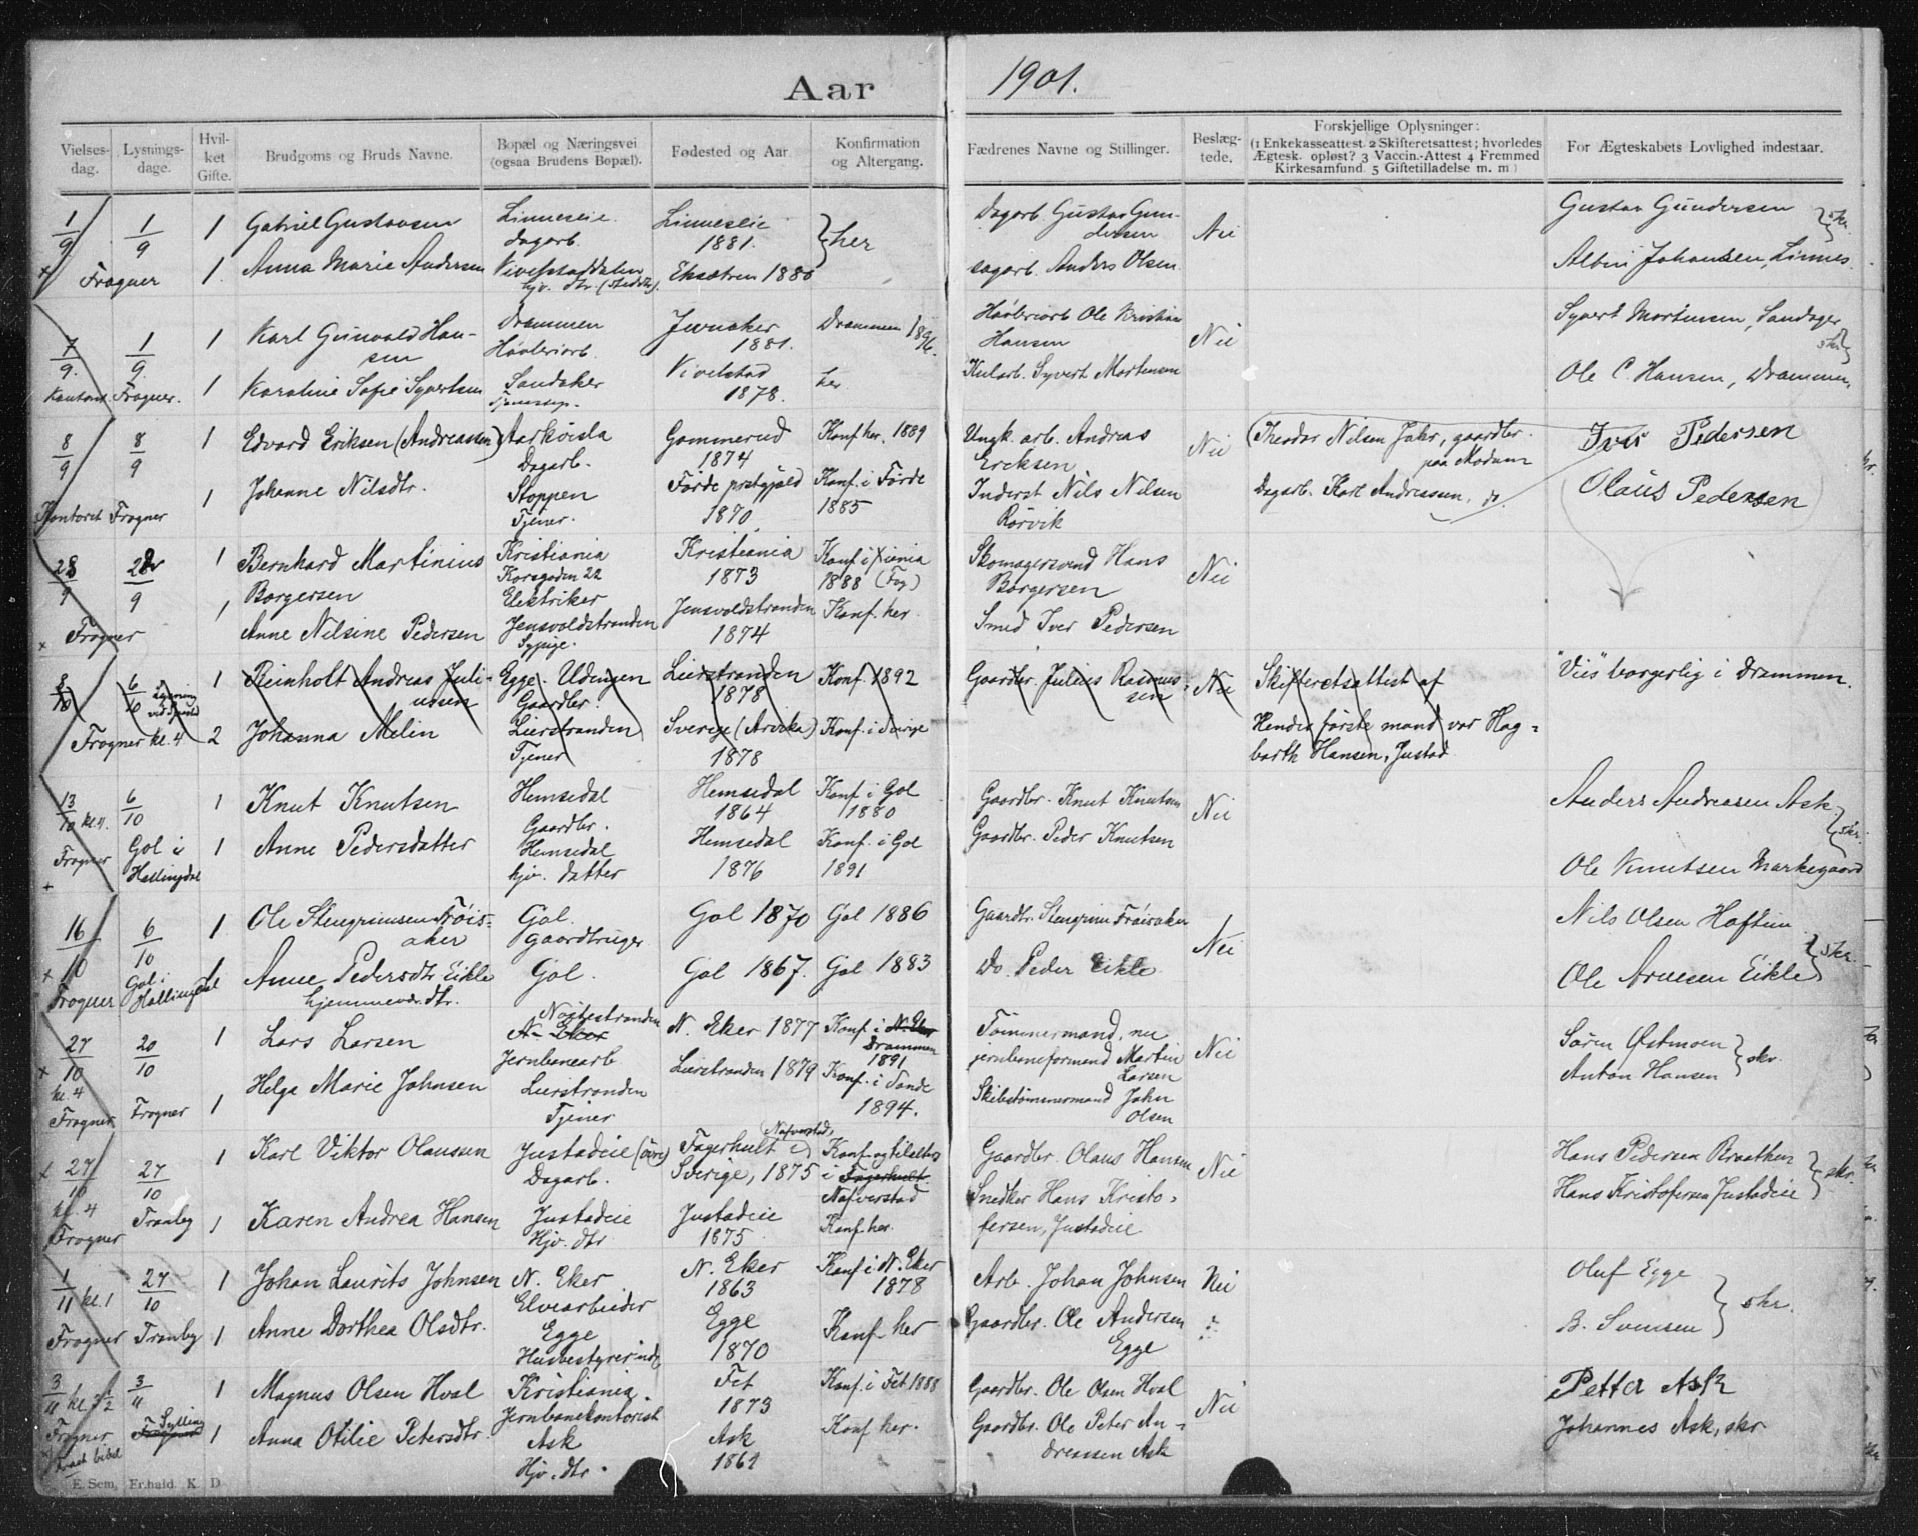 Aar 1901.
Vielses-dag. Lysnings-dage. Hvil-ket Gifte. Brudgoms og Bruds Navne. Bopæl og Næringsvei (ogsaa Brudens Bopæl). Fødested og Aar. Konfirmation og Altergang. Fædrenes Navne og Stillinger. Beslæg-tede. Forskjellige Oplysninger: (1 Enkekasseattest 2 Skifteretsattest; hvorledes Ægtesk. opløst? 3 Vaccin.-Attest 4 Fremmed Kirkesamfund 5 Giftetilladelse m. m.) For Ægteskabets Lovlighed indestaar.
1/9 1/9 1 Gabriel Gustavsen Linneseie Linneseie } her Dagarb. Gustav Gun- Nei Gustav Gundersen } skr.
dagarb. 1881. dersen
× Frogner 1. Anna Marie Andersen Vivelstaddalen Eksætren 1880 sagarb. Anders Olsen Albin Johansen, Linnes.
hjv. dtr.
7/9. 1/9. 1 Karl Gunvald Han- Drammen Jevnaker Drammen 1896. Høvleriarb Ole Kristian Nei Syvert Mortensen, Sandager
sen Høvleriarb. 1881. Hansen skr }
Kontoret Frogner. 1 Karoline Sofie Syvertsen Sandaker Vivelstad her Syvert Mortensen Ole C. Hansen, Drammen.
1878.
8/9 8/9 1 Edvard Eriksen (Andreassen) Aarkvisla Gommerud Konf. her. 1889 Ungk. arb. Andreas Nei (Theodor Nilsen Jahr, gaardbr. Iver Pedersen
Dagarb. 1874 Ericksen paa Modum
1 Johanne Nilsdtr. Stoppen Førde prstgjæld Konf. i Førde Inderst Nils Nilsen Dagarb. Karl Andreassen, do. Olaus Pedersen
Kontoret Frogner Tjener. 1870. 1885 Rörvik
28/9 9 1 Bernhard Martinius Kristiania Kristiania Konf i X.iania Skomagersvend Hans Nei
Borgersen Korsgaden 22 1873 1888 Borgersen
Elektriker
× Frogner 1 Anne Nilsine Pedersen Jensvoldstranden Jensvoldstranden Konf. her. Smed Iver Pedersen
Sypige. 1874
8/10 6/10 1 Reinholt Andreas Juli- Egge Udengen Lierstranden Konf. 1892 Gaardbr. Julius Rasmus- Nei Skifteretsattest af "Viet" borgerlig i Drammen.
ussen Gaardbr. 1878 sen
Frogner kl. 4 2 Johanna Melin Lierstranden Sverige (Arvika) Konf. i Sverige Hendes første mand var Hag-
Tjener 1878 barth Hansen, Justad
13/10 kl. 4. 6/10 1 Knut Knutsen Hemsedal Hemsedal Konf. i Gol Gaardbr. Knut Knutsen Nei Anders Andreasen Ask } skr.
Gaardbr. 1864 1880
Frogner Gol i 1 Anne Pedersdatter Hemsedal Hemsedal Konf. i Gol Gaardbr. Peder Knutsen
× Hallingdal hjv. datter 1876 1891 Ole Knutsen Markegaard
16/10 6/10 1 Ole Stengrimsen Frøis- Gol. Gol 1870 Gol 1886 Gaardbr. Stengrim Frøisaker Nei Nils Olsen Haftun } skr.
aker Gaardbruger
× Frogner Gol i 1 Anne Pedersdtr Eikle Gol. Gol 1867. Gol 1883 Do. Peder Eikle. Ole Arnesen Eikle
Hallingdal hjemmevær. dtr.
27/10 20/10 1 Lars Larsen Nøstestranden N. Eker 1877 Konf. i N. Eker Tømmermand, nu Nei Søren Østmoen } skr.
N. Eker Drammen jernbaneformand Martin Anton Hansen
× kl. 4 Jernbanearb 1891 Larsen
Frogner Frogner 1 Helga Marie Johnsen Lierstranden Lierstranden 1879 Konf. i Sande Skibstømmermand John
Tjener 1894. Olsen
× 27/10 27/10 1 Karl Viktor Olausen Justadeie (øvre) Fagerhult i Nafverstad, Gaardbr. Olaus Hansen Nei Hans Pedersen Braathen } skr.
Dagarb. Sverige, 1875 i Fagerhult. Nafverstad
kl. 4 Tranby 1 Karen Andrea Hansen Justadeie Justadeie Konf. her. Snedker Hans Kristo- Hans Kristofersen Justadeie
Frogner Hjv. dtr 1875 fersen, Justadeie
1/11 kl. 1 27/10 1 Johan Laurits Johnsen N. Eker N. Eker Konf i N. Eker Arb. Johan Johnsen Nei Oluf Egge } skr.
Elvearbeider 1863 1878
Frogner Tranby 1 Anne Dorthea Olsdtr. Egge Egge Konf her Gaardbr. Ole Andersen B. Svensen
Husbestyrerinde 1870 Egge
3/11 3/11 1 Magnus Olsen Hval Kristiania. Fet Konf. i Fet 1888 Gaardbr. Ole Olsen Hval Nei Petter Ask
Jernbanekontorist 1873
Frogner Sylling 1 Anna Otilie Petersdtr. Ask Ask Konf her. Gaardbr. Ole Peter An- Johannes Ask, skr
bibel Hjv. dtr. 1869 dreassen Ask
E. Sem, Fr.hald K. D